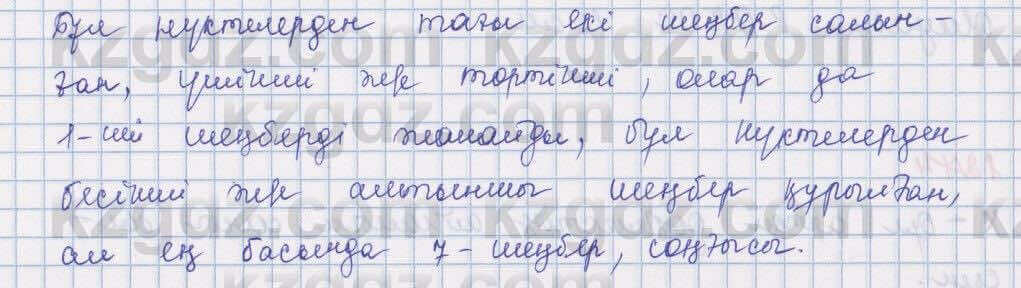 Бұл нүктелерден тағы екі шеңбер салын-
ған, үшінші және төртінші, олар да
1-ші шеңберді жанайды, бұл нүктелерден
бесінші және алтыншы шеңбер құрылған,
ал ең басында 7-шеңбер, соңғысы.
kzgdz.com